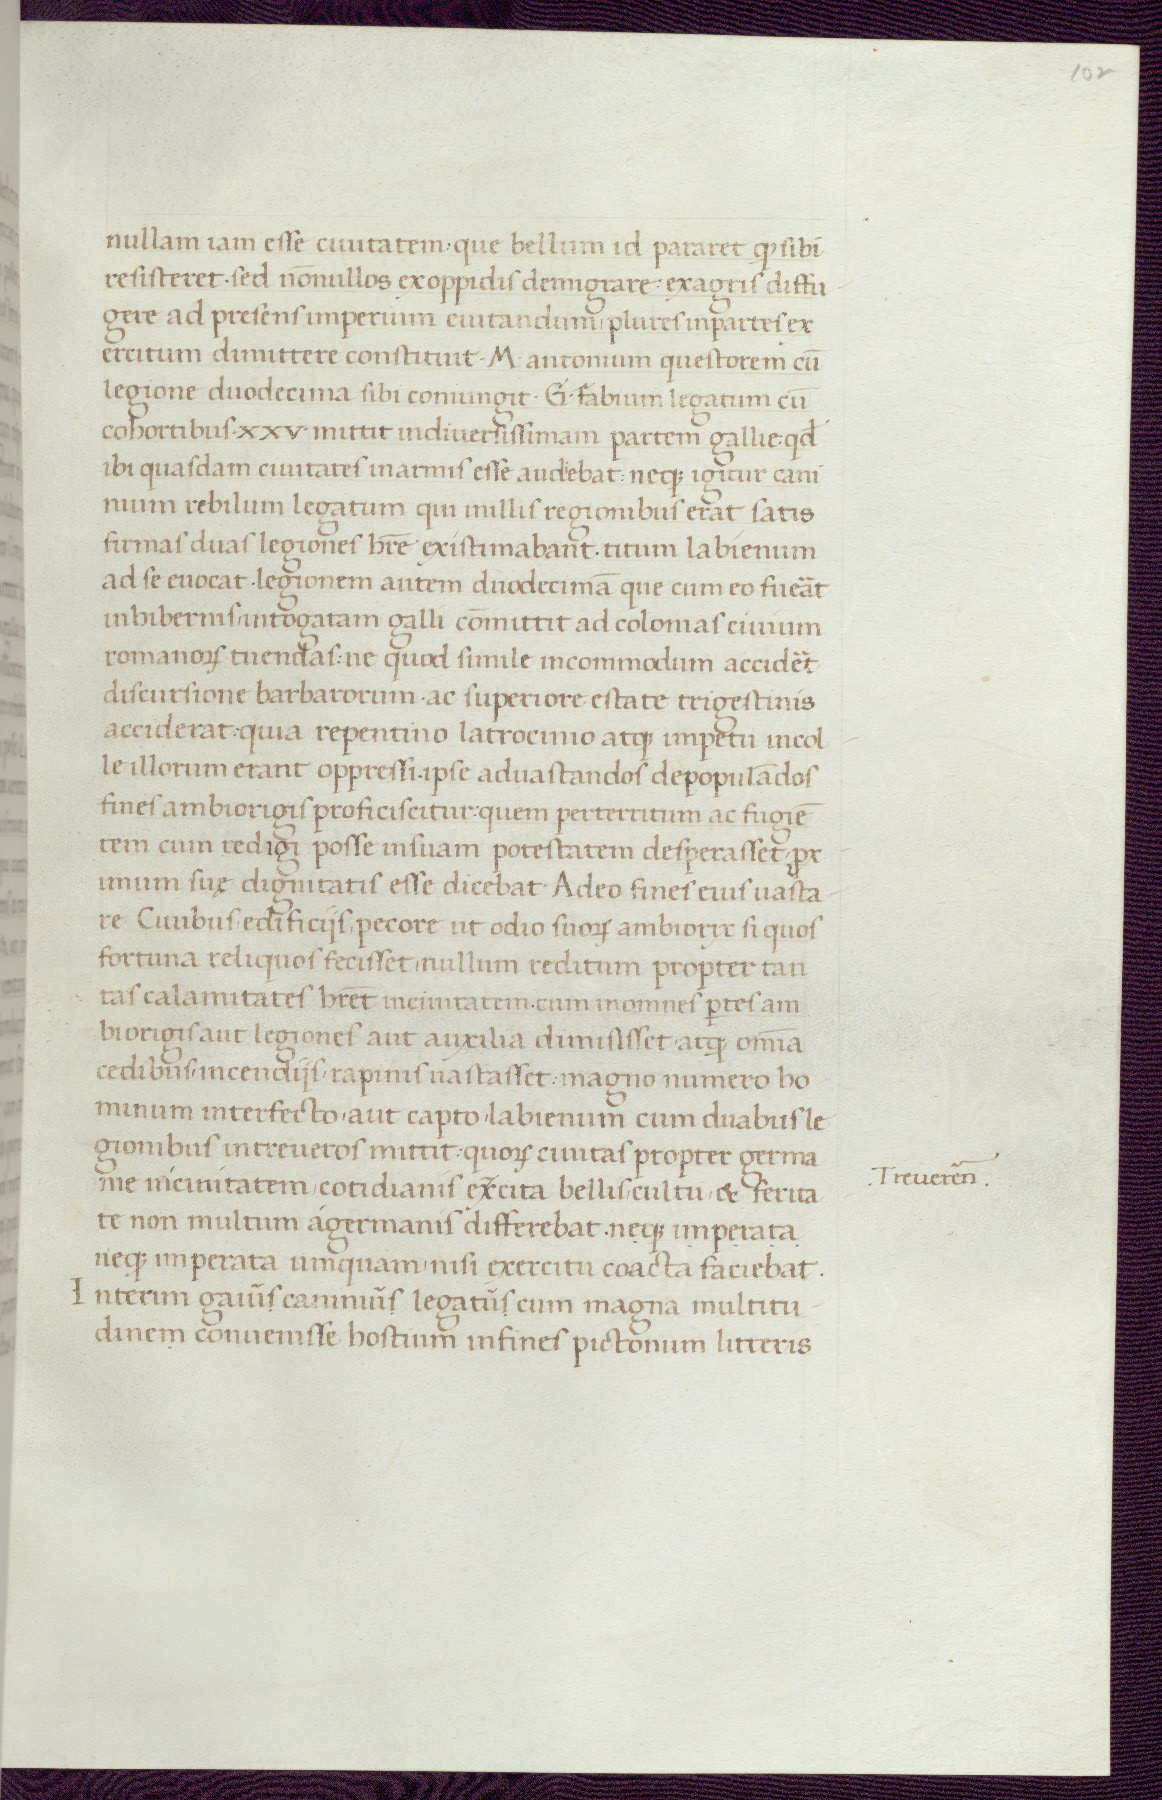 102
nullam iam esse ciuitatem · que bellum id pararet qꝫ sibi
resisteret · sed nōnullos ex oppidis demigrare : ex agris diffu
gere ad presens imperium euitandum / plures in partes ex
ercitum dimittere constituit · M · antonium questorem cū
legione duodecima sibi coniungit · G · fabium legatum cū
cohortibus · xxv · mittit in diuersissimam partem gallie : qd
ibi quasdam ciuitates in armis esse audiebat : neqꝫ igitur cani
nium rebilum legatum qui in illis regionibus erat satis
firmas duas legiones hr̄e existimabant · titum labienum
ad se euocat · legionem autem duodecimā que cum eo fuer̄at
in hibernis / in togatam galli cōmittit ad colonias ciuium
romanoꝝ tuendas : ne quod simile incommodum accider̄et
discursione barbarorum · ac superiore estate trigestinis
acciderat : quia repentino latrocinio atqꝫ impetu incol
le illorum erant oppressi · ipse ad uastandos depopulādos
fines ambiorigis proficiscitur : quem perterritum ac fugiē
tem cum redigi posse in suam potestatem desperasset / prox
imum suę dignitatis esse dicebat · Adeo fines eius uasta
re Ciuibus / edificijs / pecore ut odio suoꝝ ambiorix si quos
fortuna reliquos fecisset / nullum reditum propter tan
tas calamitates hr̄et in ciuitatem · cum in omnes ꝑtes am
biorigis aut legiones aut auxilia dimisisset / atqꝫ omīa
cedibus / incendijs / rapinis uastasset : magno numero ho
minum interfecto / aut capto / labienum cum duabus le
gionibus in treueros mittit : quoꝝ ciuitas propter germa
nie in ciuitatem / cotidianis excita bellis / cultu / & ferita
te non multum a germanis differebat · neqꝫ imperata
neqꝫ imperata umquam / nisi exercitu coacta faciebat .
Interim gaius caninius legatus cum magna multitu
dinem conuenisse hostium in fines pictonum litteris
. Treueren̄ .